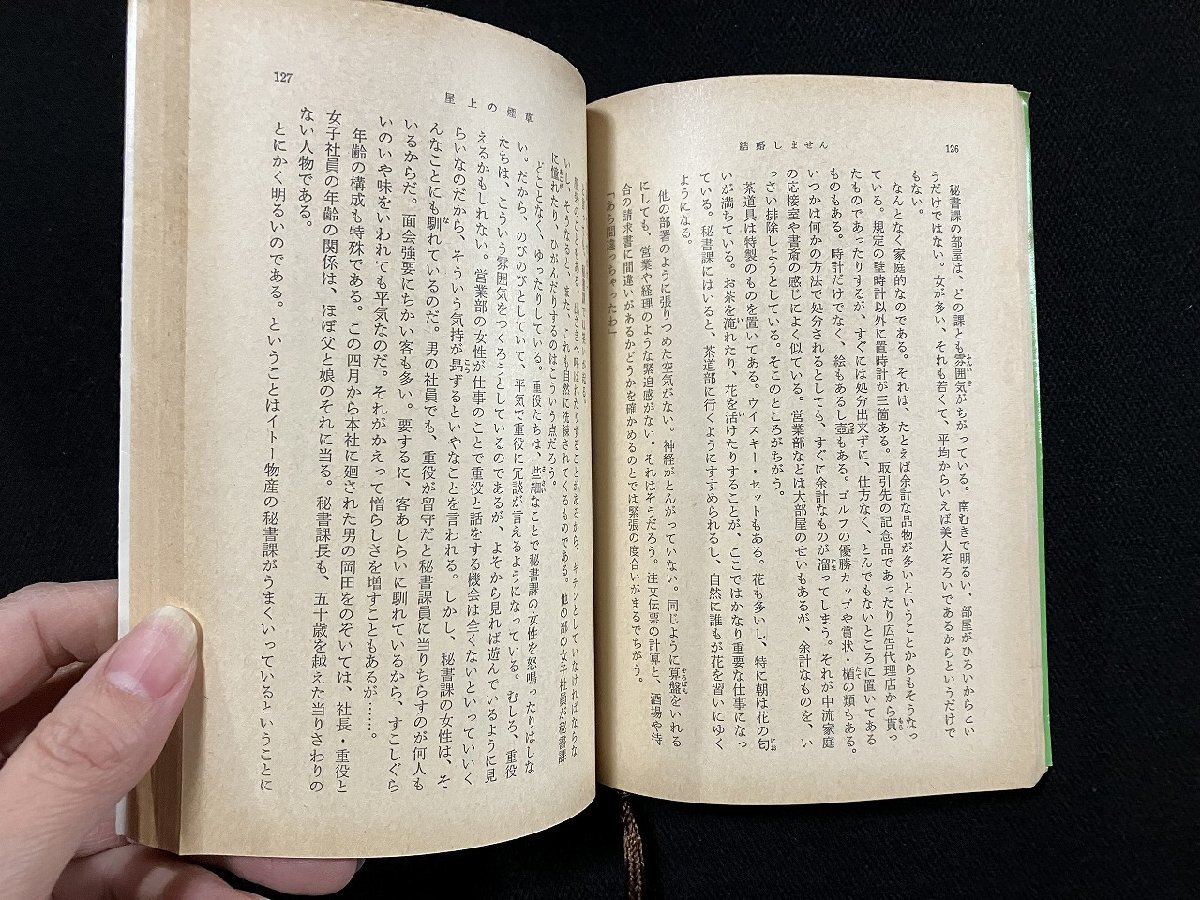 126
結婚しません
秘書課の部屋は、どの課とも雰囲気がちがっている。南むきで明るい、部屋がひろいからとい
うだけではない。女が多い、それも若くて、平均からいえば美人ぞろいであるからというだけで
もない。
なんとなく家庭的なのである。それは、たとえば余計な品物が多いということからもそうなっ
ている。規定の壁時計以外に置時計が三箇ある。取引先の記念品であったり広告代理店から貰っ
たものであったりするが、すぐには処分出来ずに、仕方なく、とんでもないところに置いてある
ものもある。時計だけでなく、絵もあるし壺もある。ゴルフの優勝カップや賞状・楯の類もある。
いつかは何かの方法で処分されるとしても、すぐに余計なものが溜ってしまう。それが中流家庭
の応接室や書斎の感じによく似ている。営業部などは大部屋のせいもあるが、余計なものを、い
っさい排除しようとしている。そこのところがちがう。
茶道具は特製のものを置いてある。ウイスキー・セットもある。花も多いし、特に朝は花の匂
いが満ちている。お茶を淹れたり、花を活けたりすることが、ここではかなり重要な仕事になっ
ている。秘書課にはいると、茶道部に行くようにすすめられるし、自然に誰もが花を習いにゆく
ようになる。
他の部署のように張りつめた空気がない。神経がとんがっていない。同じように算盤をいれる
にしても、営業や経理のような緊迫感がない。それはそうだろう。注文伝票の計算と、酒場や待
合の請求書に間違いがあるかどうかを確かめるのとでは緊張の度合いがまるでちがう。
「あら間違っちゃったわ」
127
屋上の煙草
いし、そうなると、また、これも自然に洗練されてくるものである。他の部の女子社員が秘書課
に憧れたり、ひがんだりするのはこういう点だろう。
どことなく、ゆったりしている。重役たちは、些細なことで秘書課の女性を怒鳴ったりはしな
い。だから、のびのびとしていて、平気で重役に冗談が言えるようになっている。むしろ、重役
たちは、こういう雰囲気をつくろうとしているのであるが、よそから見れば遊んでいるように見
えるかもしれない。営業部の女性が仕事のことで重役と話をする機会は全くないといっていいく
らいなのだから、そういう気持が昂ずるといやなことを言われる。しかし、秘書課の女性は、そ
んなことにも馴れているのだ。男の社員でも、重役が留守だと秘書課員に当りちらすのが何人も
いるからだ。面会強要にちかい客も多い。要するに、客あしらいに馴れているから、すこしぐら
いのいや味をいわれても平気なのだ。それがかえって憎らしさを増すこともあるが……。
年齢の構成も特殊である。この四月から本社に廻された男の岡田をのぞいては、社長・重役と
女子社員の年齢の関係は、ほぼ父と娘のそれに当る。秘書課長も、五十歳を越えた当りさわりの
ない人物である。
とにかく明るいのである。ということはイトー物産の秘書課がうまくいっているということに